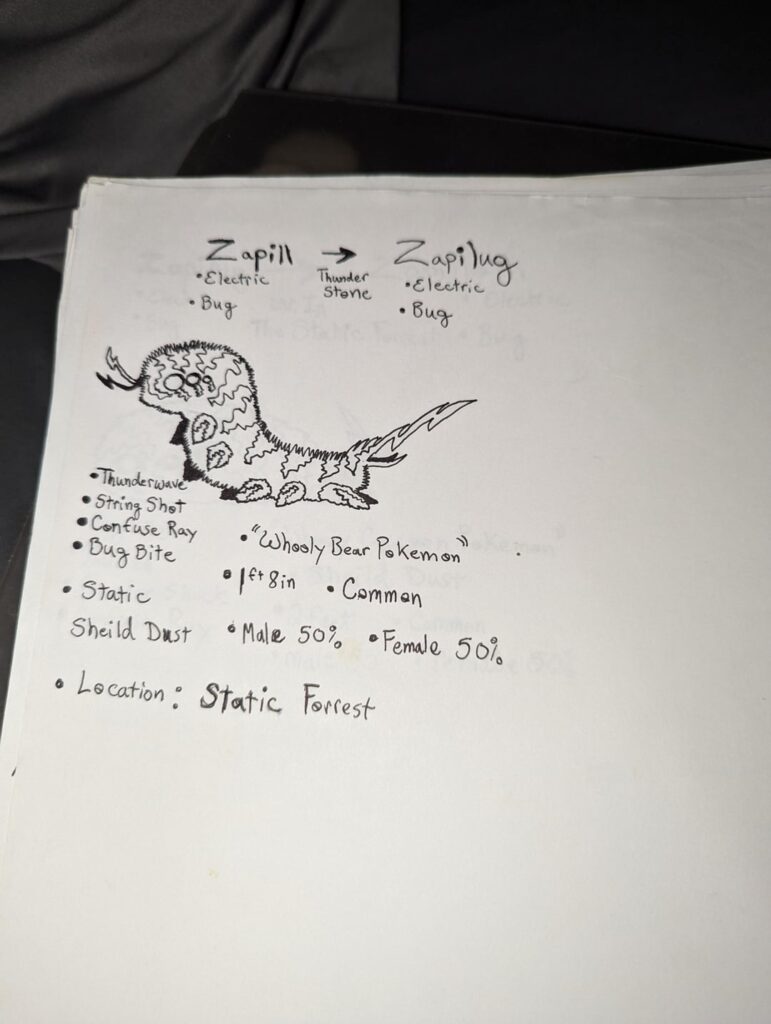 Zapill → Zapilug
• Electric Thunder Stone • Electric
• Bug • Bug
• Thunderwave
• String Shot
• Confuse Ray
• Bug Bite
• "Whooly Bear Pokemon"
• 1ft 8in • Common
• Static
Sheild Dust • Male 50% • Female 50%
• Location: Static Forrest